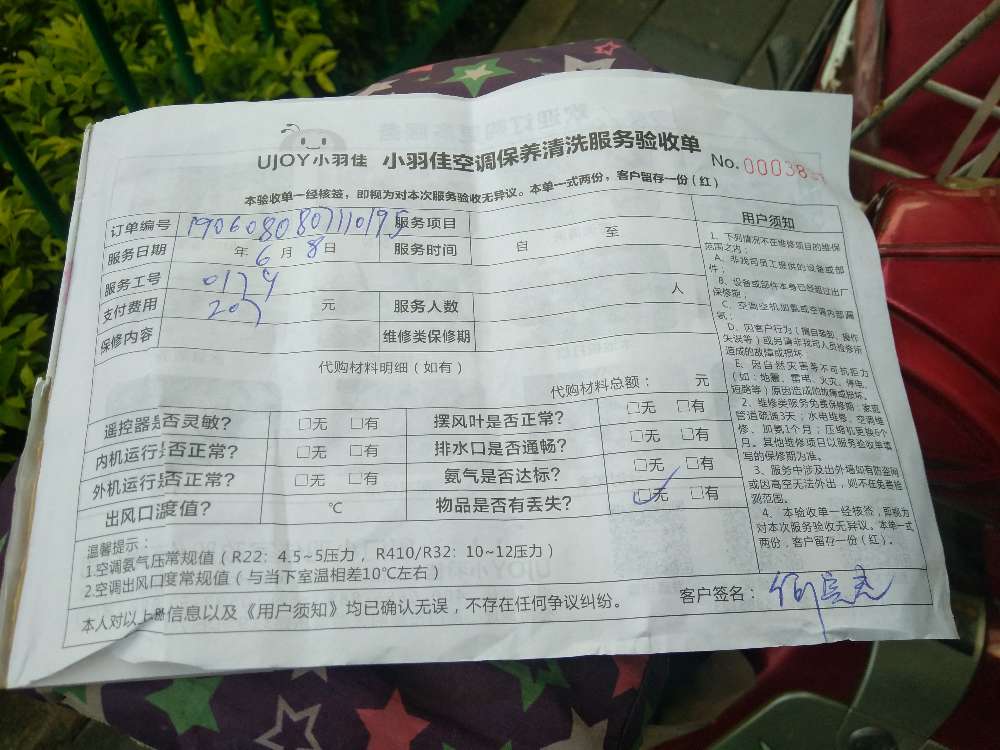 UJOY小羽佳 小羽佳空调保养清洗服务验收单
No. 00038
本验收单一经核签，即视为对本次服务验收无异议。本单一式两份，客户留存一份（红）
订单编号 服务项目
服务日期 年 6 月 8 日 服务时间 自 至
服务工号
支付费用 元 服务人数 人
保修内容 维修类保修期
代购材料明细（如有）
代购材料总额： 元
遥控器是否灵敏？ □无 □有 摆风叶是否正常？ □无 □有
内机运行是否正常？ □无 □有 排水口是否通畅？ □无 □有
外机运行是否正常？ □无 □有 氨气是否达标？ □无 □有
出风口温度值？ ℃ 物品是否有丢失？ □无 □有
温馨提示：
1.空调氨气压常规值（R22：4.5~5压力，R410/R32：10~12压力）
2.空调出风口度常规值（与当下室温相差10℃左右）
本人对以上 信息以及《用户须知》均已确认无误，不存在任何争议纠纷。 客户签名：
用户须知
1、下列情况不在维修项目的维保
范围之内：
A、非我司员工提供的设备或部
件；
B、设备或部件本身已经超过出厂
保修期；
C、空调空机加氨或空调内部漏
氨；
D、因客户行为（擅自装卸、操作
失误等）或另请非我司人员检修所
造成的故障或损坏
E、因自然灾害等不可抗拒力
（如：地震、雷电、火灾、停电、
短路等）原因造成的故障或损坏。
2、维修类服务免费保修期：家庭
管道疏通3天；水电维修、空调维
修、加氨1个月；压缩机更换6个
月。其他维修项目以服务验收单填
写的保修期为准。
3、服务中涉及出外墙如有防盗网
或因高空无法外出，则不在免费检
测范围。
4、本验收单一经核签，即视为
对本次服务验收无异议。本单一式
两份，客户留存一份（红）。